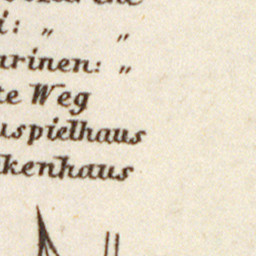 i: „ „
urinen: „
te Weg
uspielhaus
kenhaus